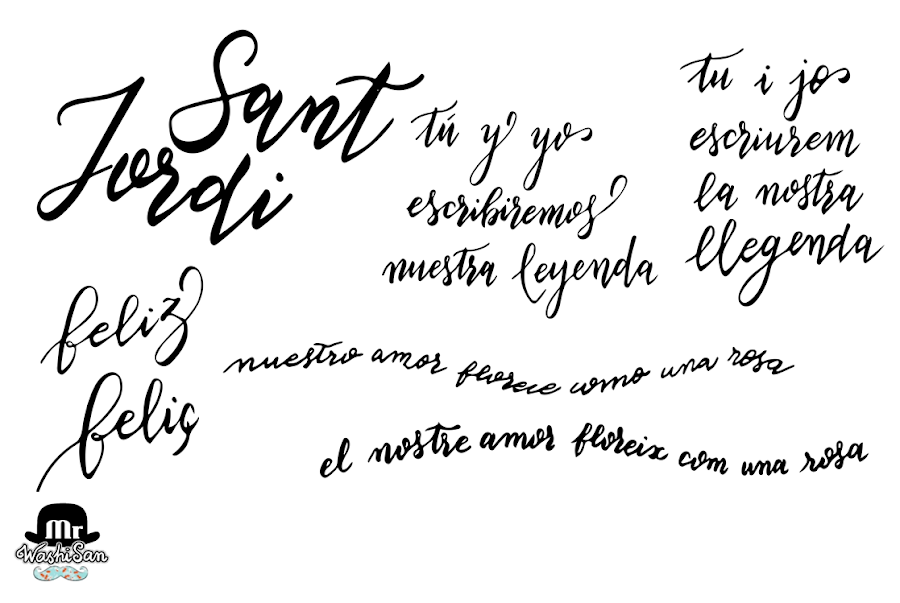 Sant
Jordi
tú y yo
escribiremos
nuestra leyenda
tu i jo
escriurem
la nostra
llegenda
feliz
feliç
nuestro amor florece como una rosa
el nostre amor floreix com una rosa
Mr
WashiSan